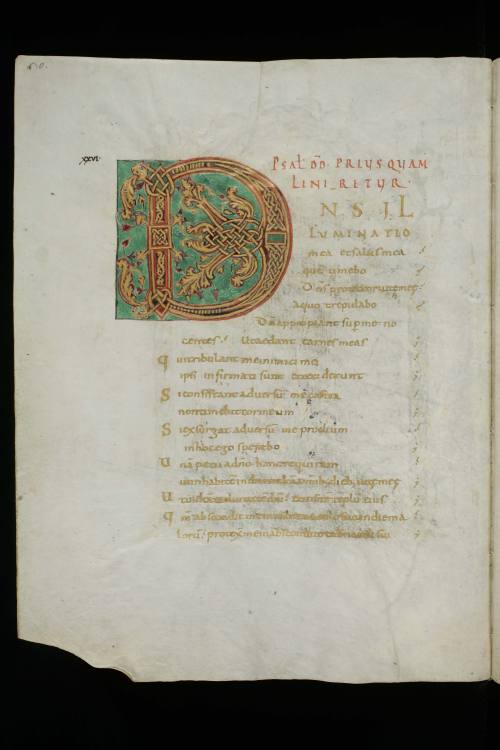 XXVI·
PSAL DD PRIUSQUAM
LINIRETUR·
D NS IL
LUMINATIO
mea et salus mea
quem timebo
Dns protector uite mee
a quo trepidabo
Dū appropiant sup me no
centes· Ut edant carnes meas
Qui tribulant me inimici mei
ipsi infirmati sunt et ceciderunt
Si consistant aduersū me castra
non timebit cor meum
Si exsurgat aduersū me proelium
in hoc ego sperabo
Unā petii a dnō hanc requiram
ut inhabitē in domo dnī omnib; dieb; uite mee
Ut uideā uoluntatē dnī· et uisitē templū eius
Qm̄ abscondit me in tabernaculo suo in die ma
lorū· protexit me in abscondito tabernaculi sui